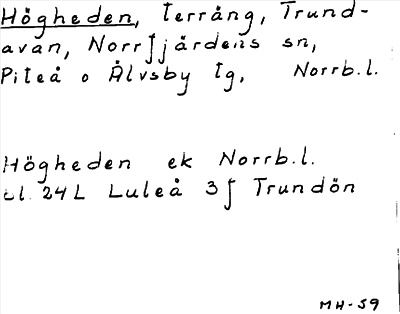 Högheden, terräng, Trund-
avan, Norrfjärdens sn,
Piteå o Älvsby tg, Norrb.l.
Högheden ek Norrb.l.
bl. 24L Luleå 3f Trundön
MH-59